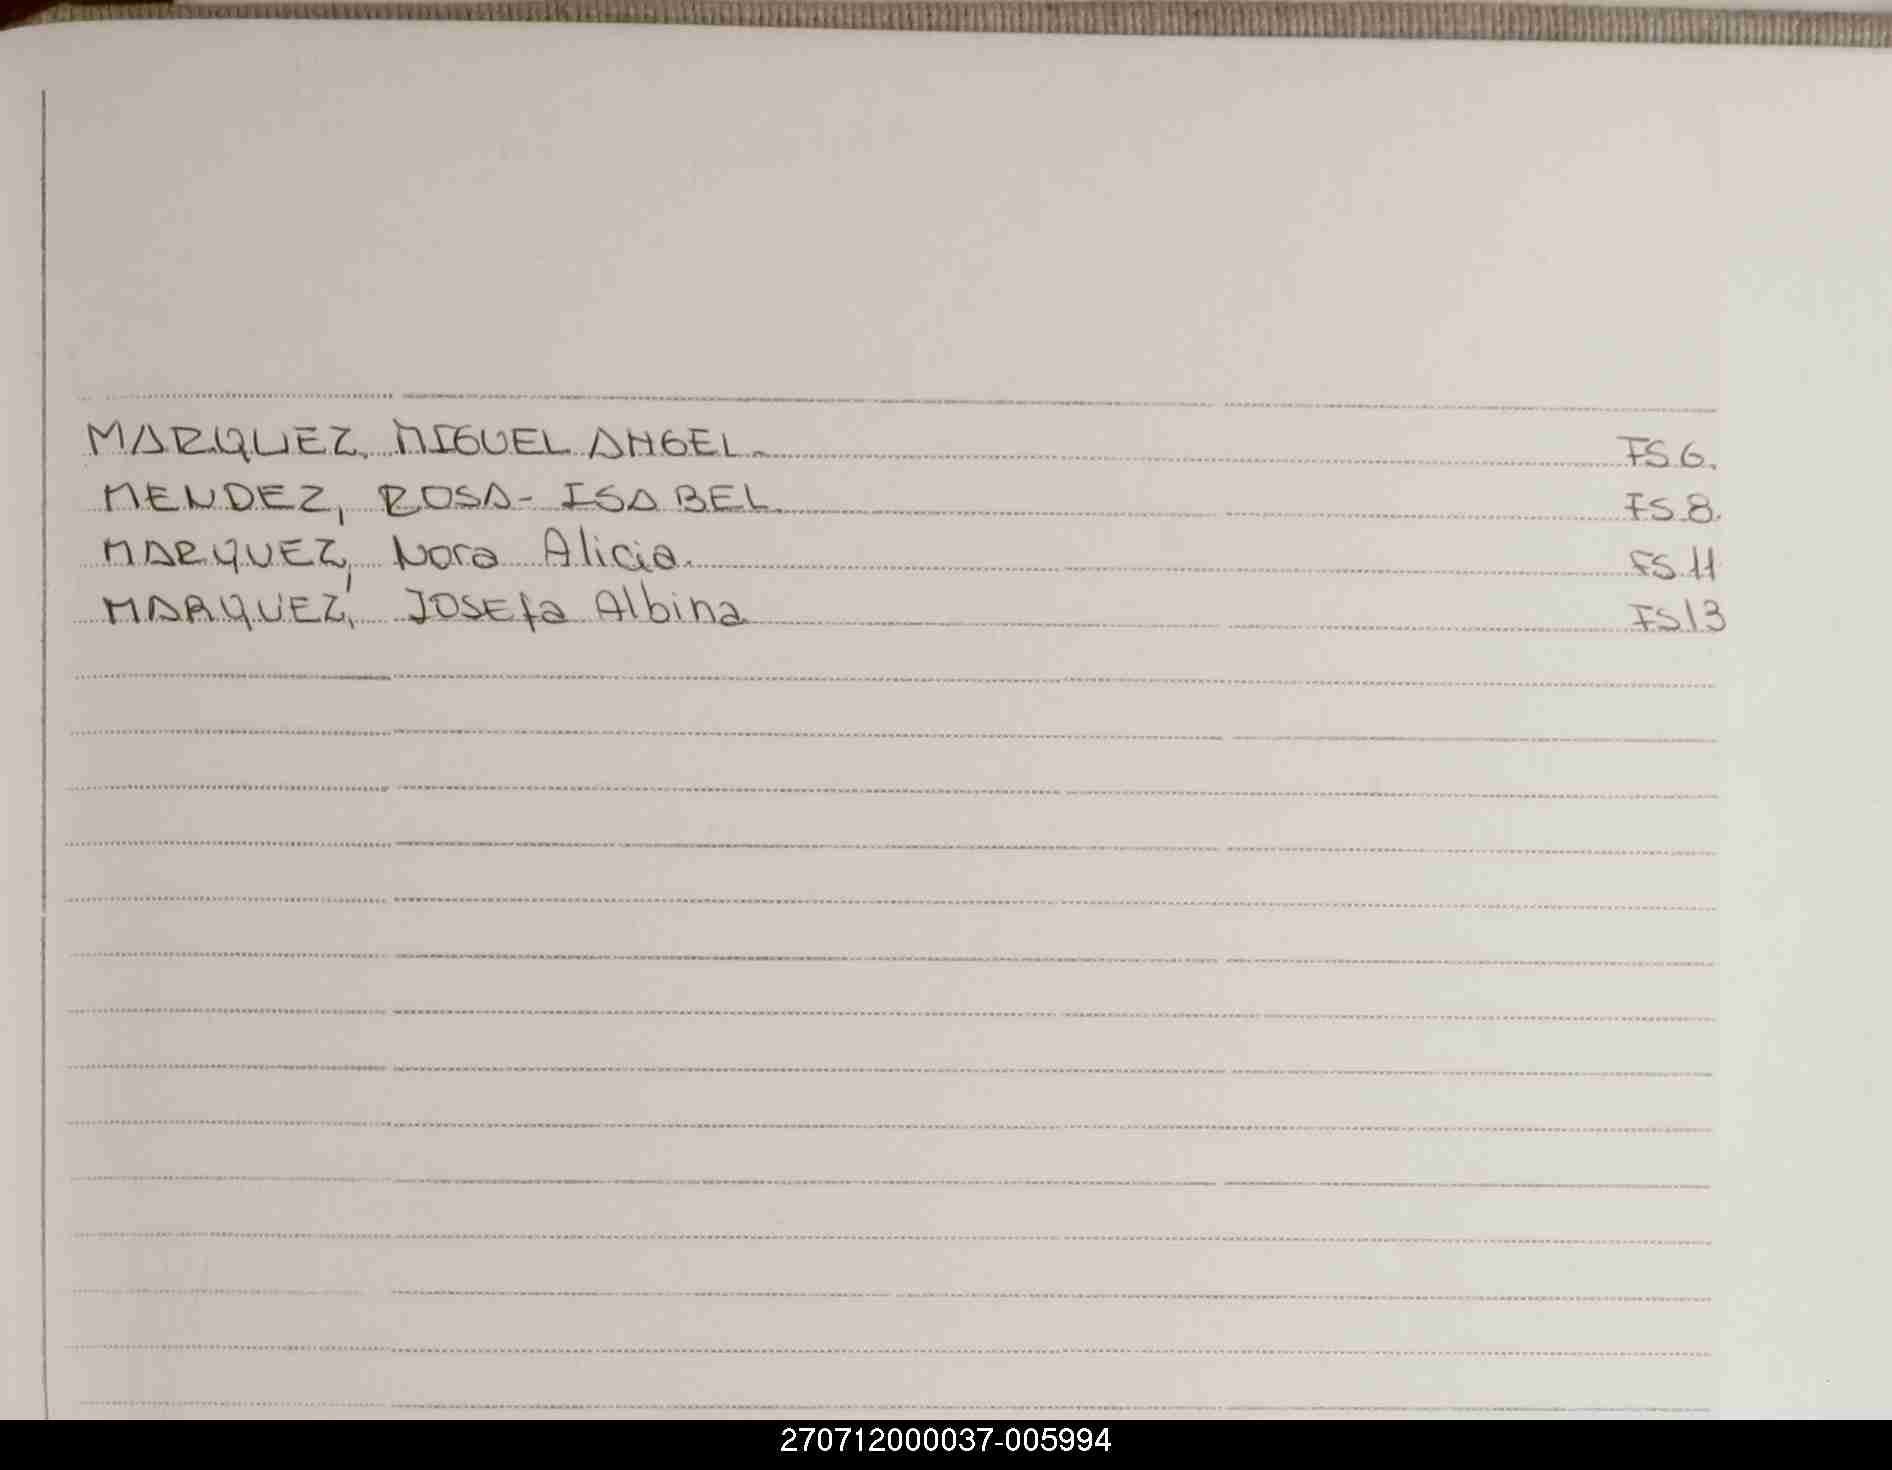 MARQUEZ, MIGUEL ANGEL. FS 6.
MENDEZ, ROSA- ISABEL. FS 8.
MARQUEZ, Nora Alicia. FS 11
MARQUEZ, JOSEfa Albina FS 13
270712000037-005994